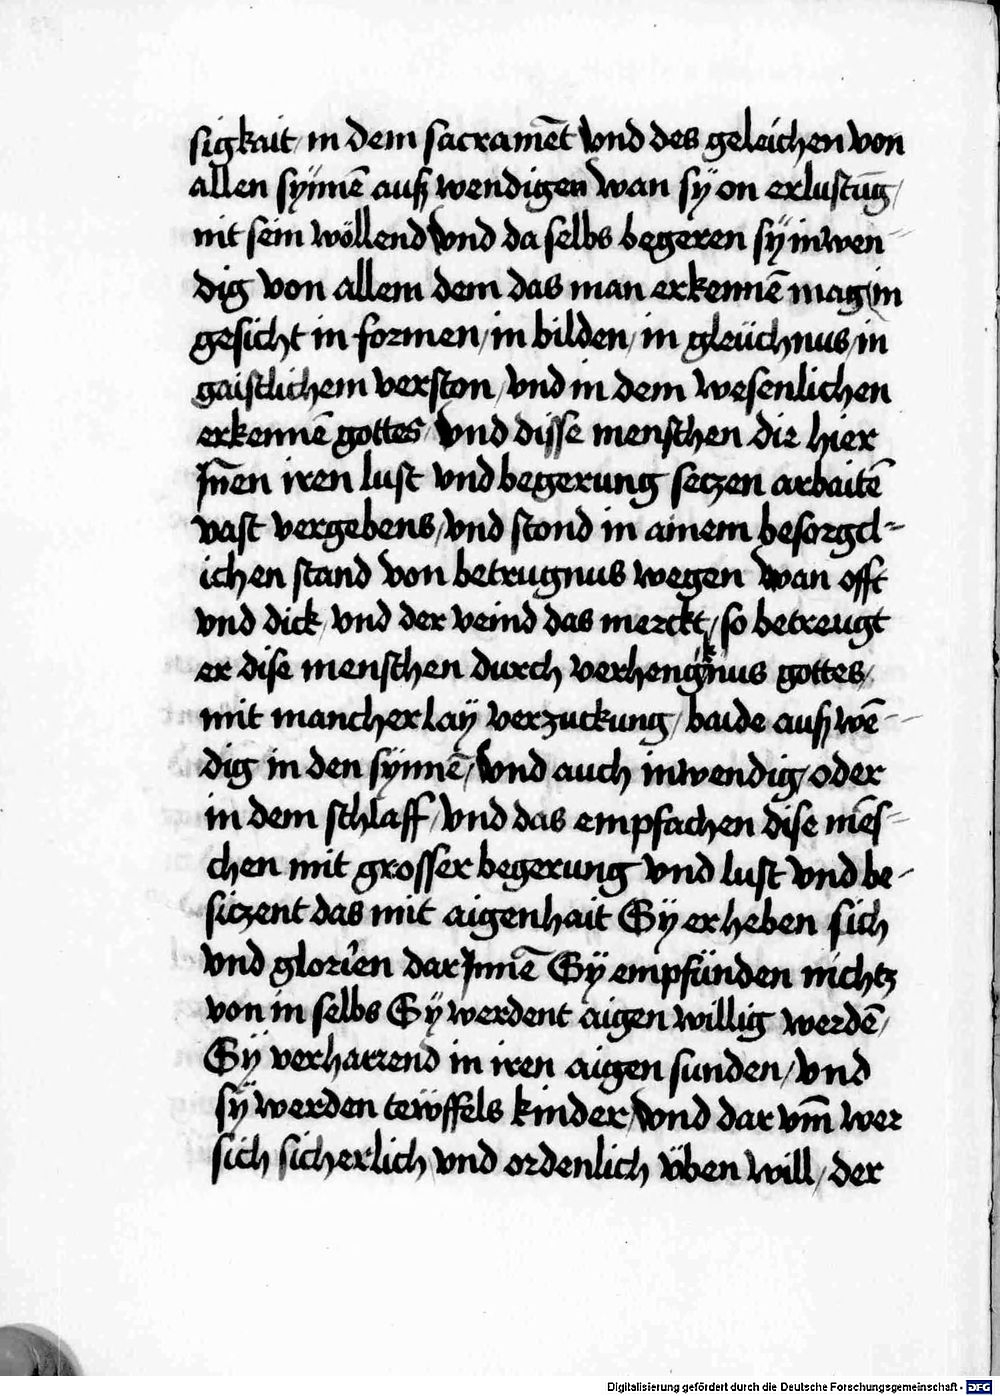 sigkait / in dem sacramēt vnd des geleichen von
allen sÿnnē auß wendigen wan sÿ on erlustūg /
nit sein wöllend vnd da selbs begeren sÿ inwen-
dig von allem dem das man erkennē mag / in
gesicht in formen / in bilden / in gleüchnus / in
gaistlichem verston / vnd in dem wesenlichen
erkennē gottes / vnd disse menschen die hier
Jn̄en iren lust vnd begerung seczen arbaitē
vast vergebens / vnd stond in ainem besorgcl-
ichen stand von betrugnus wegen wan offt
vnd dick / vnd der veind das merckt / so betreugt
er dise menschen durch verhengknus gottes /
mit mancherlaÿ verzuckung / baide auß wē-
dig in den sÿnnē / vnd auch inwendig / oder
in dem schlaff / vnd das empfachen dise mēs-
chen mit grosser begerung vnd lust vnd be-
siczent das mit aigenhait Sÿ erheben sich
vnd glorien dar Jnnē Sÿ empfünden nichtz
von in selbs Sÿ werdent aigen willig werdē /
Sÿ verharrend in iren aigen sunden / vnd
sÿ werden tewffels kinder / vnd dar vm̄ wer
sich sicherlich vnd ordenlich üben will / der
Digitalisierung gefördert durch die Deutsche Forschungsgemeinschaft - DFG